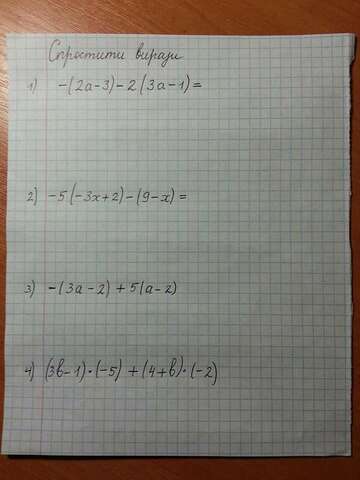 Спростити вирази
1) -(2a-3)-2(3a-1)=
2) -5(-3x+2)-(9-x)=
3) -(3a-2)+5(a-2)
4) (3в-1)·(-5)+(4+в)·(-2)